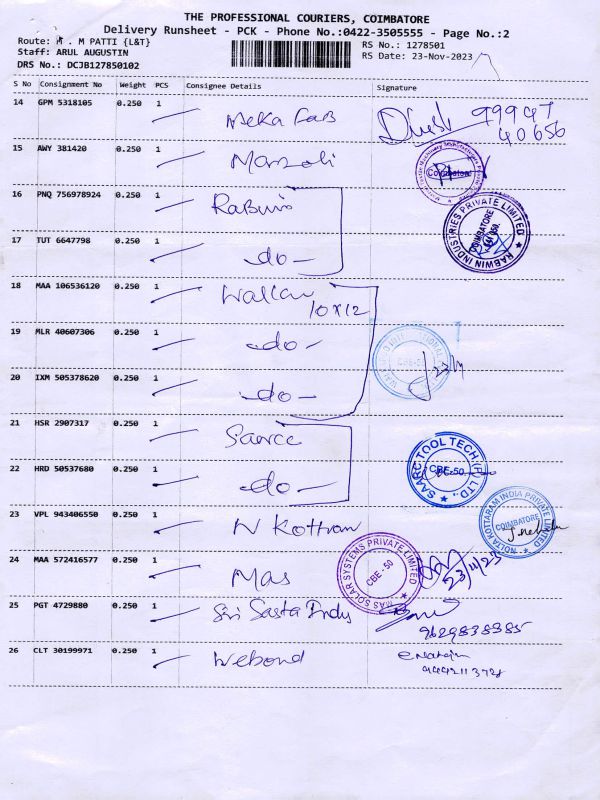 THE PROFESSIONAL COURIERS, COIMBATORE
Delivery Runsheet - PCK - Phone No.:0422-3505555 - Page No.:2
Route: M PATTI {L&T}
Staff: ARUL AUGUSTIN
DRS No.: DCJB127850102
RS No.: 1278501
RS Date: 23-Nov-2023
S No Consignment No Weight PCS Consignee Details Signature
14 GPM 5318105 0.250 1 Meka Fab 99947 40656
15 AWY 381420 0.250 1 Coimbatore
16 PNQ 756978924 0.250 1 RABWIN INDUSTRIES PRIVATE LIMITED COIMBATORE
17 TUT 6647798 0.250 1 -do-
18 MAA 106536120 0.250 1 10x12
19 MLR 40607306 0.250 1 -do-
20 IXM 505378620 0.250 1 -do-
21 HSR 2907317 0.250 1 Saarcc
22 HRD 50537680 0.250 1 -do- SAARC TOOL TECH (P) LTD., CBE-50
23 VPL 943406550 0.250 1 N Kottram NOLTA KOTTARAM INDIA PRIVATE LIMITED COIMBATORE
24 MAA 572416577 0.250 1 Mas MAS SOLAR SYSTEMS PRIVATE LIMITED CBE-50 23/11/23
25 PGT 4729880 0.250 1 Sri Sasta Indy 9629838385
26 CLT 30199971 0.250 1 Webond